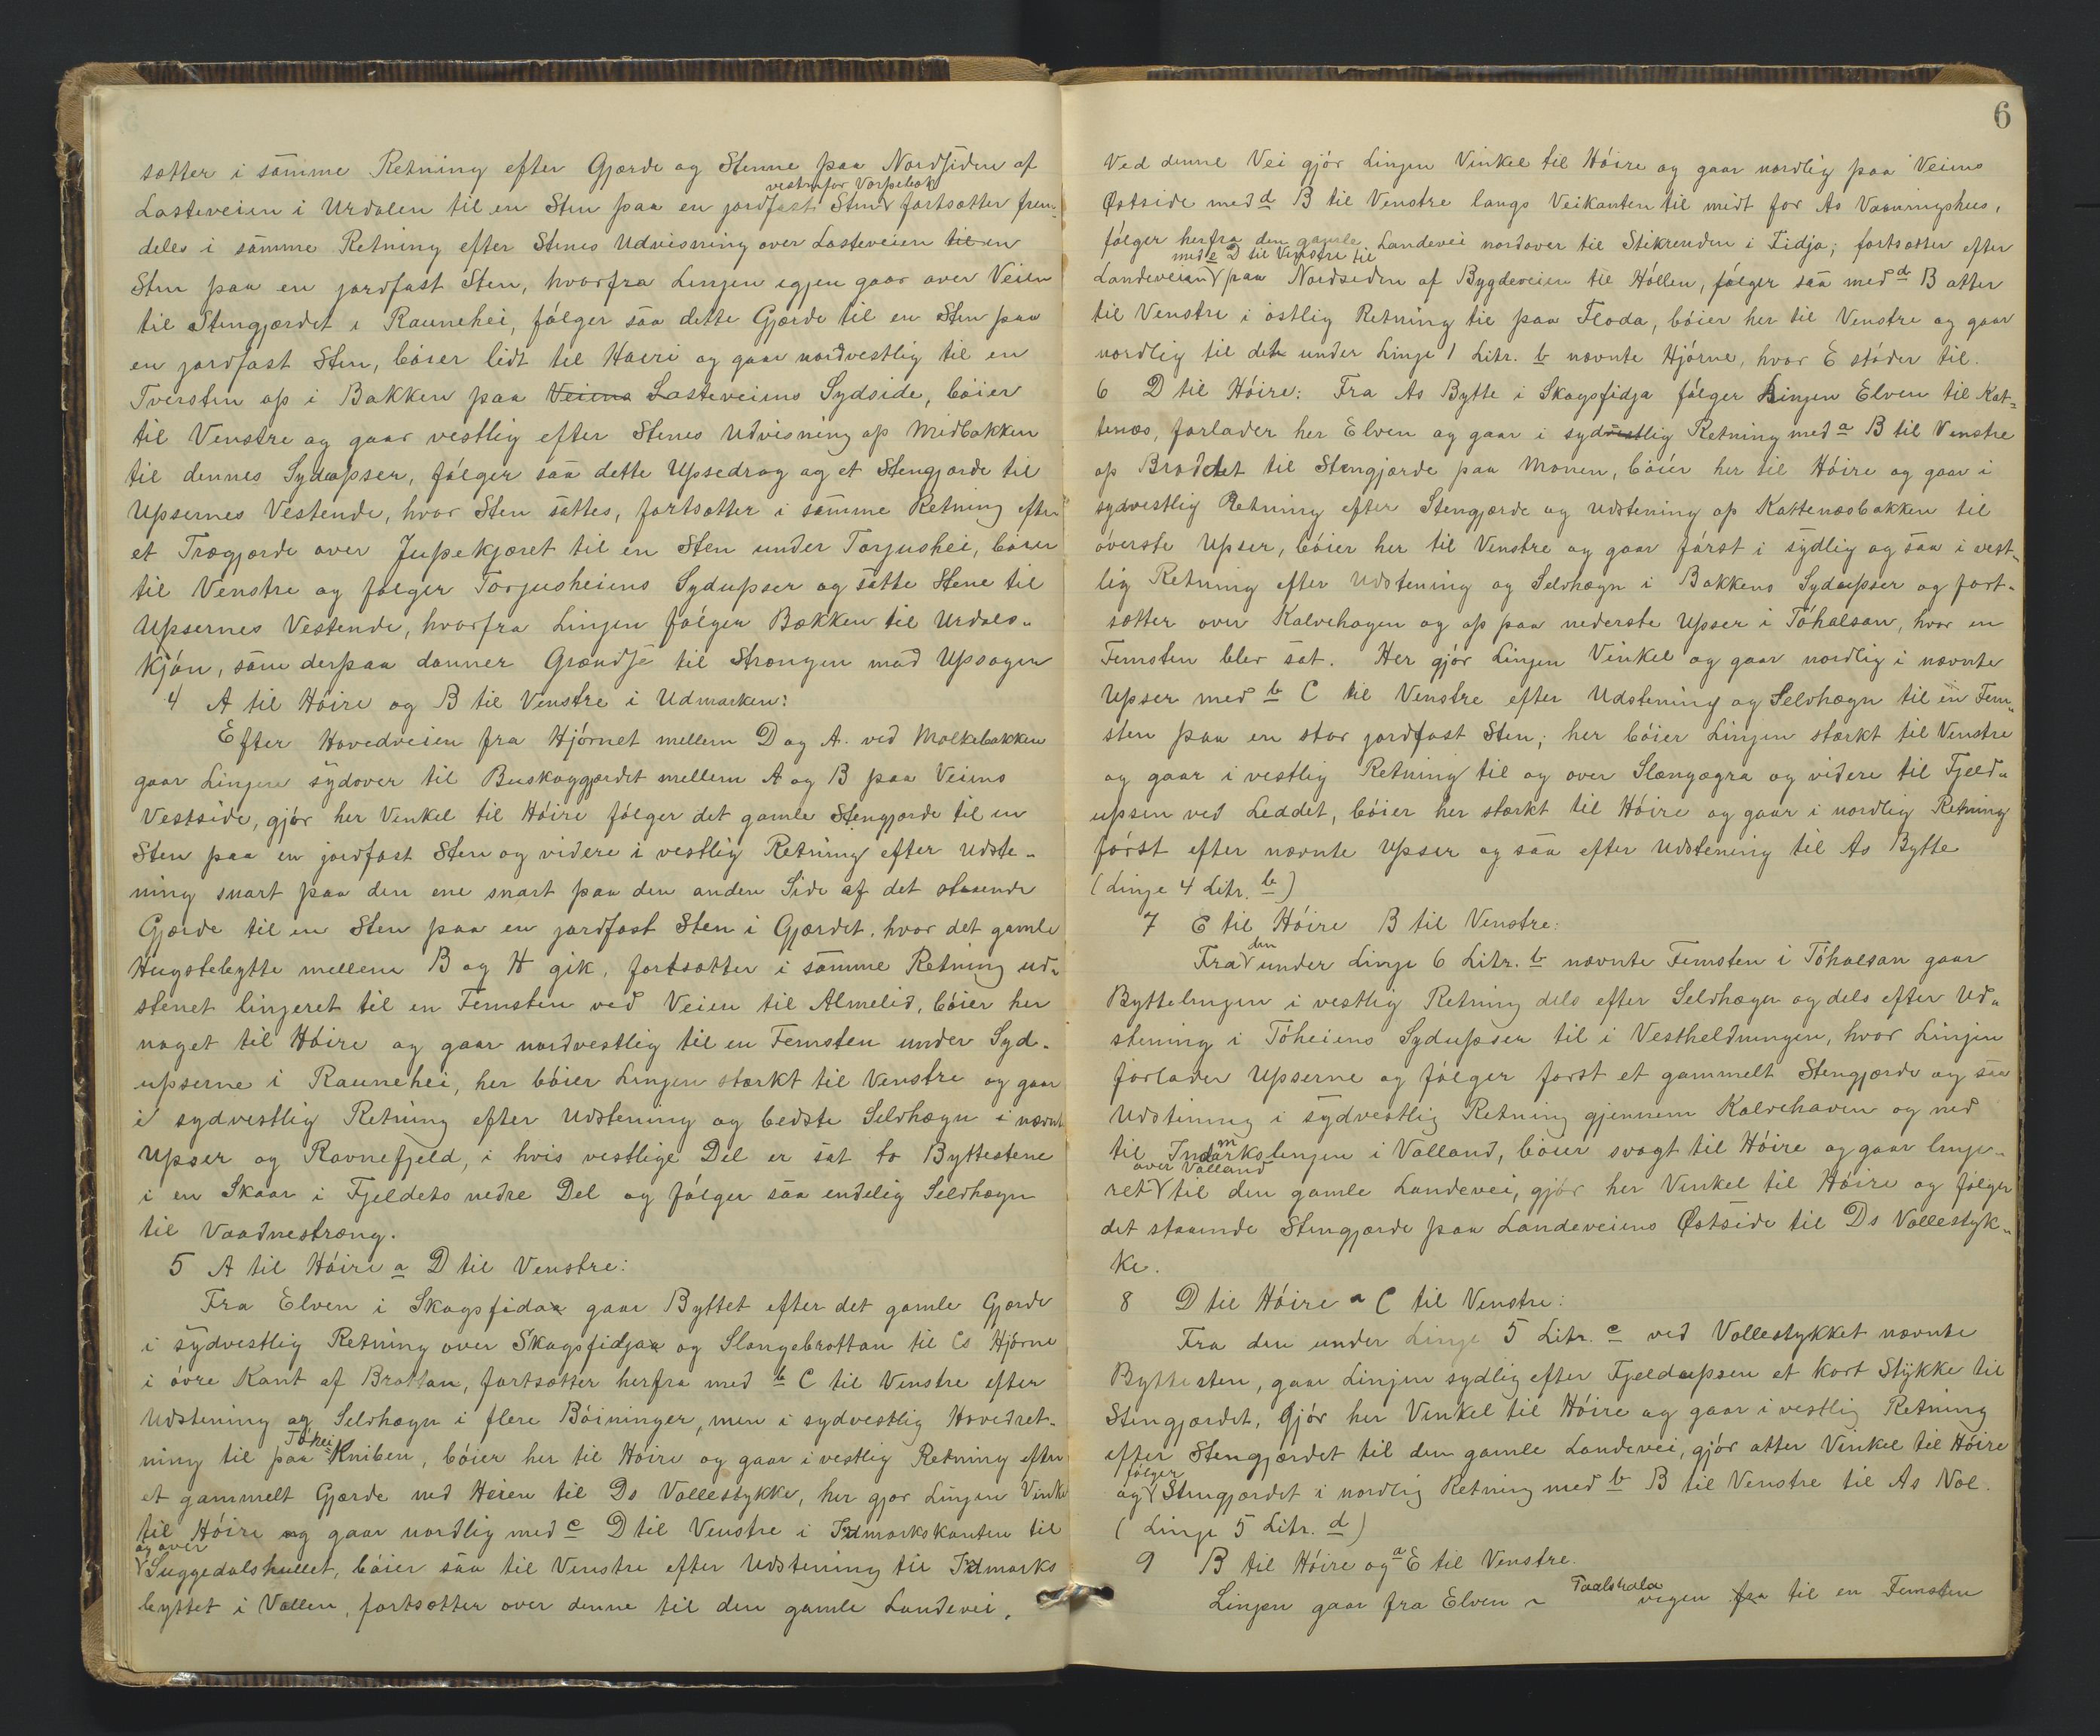 sætter i samme Retning efter Gjærde og Stenne paa Nordsiden af
Lasteveien i Urdalen til en Sten paa en jordfast Sten vestenfor Vorpebæk fortsætter frem-
deles i samme Retning efter Stenes Udvisning over Lasteveien til en
Sten paa en jordfast Sten, hvorfra Linjen igjen gaar over Veien
til Stengjærdet i Raunehei, følger saa dette Gjærde til en Sten paa
en jordfast Sten, bøier lidt til Høiri og gaar nordvestlig til en
Tversten op i Bakken paa Veiens Lasteveiens Sydside, bøier
til Venstre og gaar vestlig efter Stenes Udvisning op Midbakken
til dennes Sydupser, følger saa dette Upsedrag og et Stengjærde til
Upsernes Vestende, hvor Sten sattes, fortsætter i samme Retning efter
et Trægjærde over Jupekjæret til en Sten under Torjushei, bøier
til Venstre og følger Torjusheiens Sydupser og satte Stene til
Upsernes Vestende, hvorfra Linjen følger Bækken til Urdals-
kjøn, som derpaa danner Grændse til Strængen mod Upsagen
4 A til Høire og B til Venstre i Udmarken:
Efter Hovedveien fra Hjørnet mellem D og A. ved Molkebakken
gaar Linjen sydover til Buskaggjærdet mellem A og B paa Veiens
Vestside, gjør her Vinkel til Høire følger det gamle Stengjærde til en
Sten paa en jordfast Sten og videre i vestlig Retning efter Udste-
ning snart paa den ene snart paa den anden Side af det staaende
Gjærde til en Sten paa en jordfast Sten i Gjærdet, hvor det gamle
Hugstebytte mellem B og H gik, fortsætter i samme Retning ud-
stenet linjeret til en Femsten ved Veien til Almelid, bøier her
noget til Høire og gaar nordvestlig til en Femsten under Syd-
upserne i Raunehei, her bøier Linjen stærkt til Venstre og gaar
i sydvestlig Retning efter Udstening og bedste Selvhægn i nævnt
Upser og Ravnefjeld, i hvis vestlige Del er sat to Byttestene
i en Skaar i Fjeldets nedre Del og følger saa endelig Selvhægn
til Vaadnestræng.
5 A til Høire a D til Venstre:
Fra Elven i Skogsfidaa gaar Byttet efter det gamle Gjærde
i sydvestlig Retning over Skogsfidjaa og Slangebrottan til Cs Hjørne
i øvre Kant af Brattan, fortsætter herfra med b C til Venstre efter
Udstening og Selvhægn i flere Bøininger, men i sydvestlig Hovedret-
ning til paa Tøhei Kniben, bøier her til Høire og gaar i vestlig Retning efter
et gammelt Gjærde ned Heien til Ds Vollestykke, her gjør Linjen Vinkel
til Høire og gaar nordlig med c D til Venstre i Idmarkskanten til
og over Suggedalshullet, bøier saa til Venstre efter Udstening til Idmarks
byttet i Vollen, fortsætter over denne til den gamle Landevei.
6
Ved denne Vei gjør Linjen Vinkel til Høire og gaar nordlig paa Veiens
Østside med d B til Venstre langs Veikanten til midt for As Vaaningshus,
følger herfra den gamle Landevei nordover til Stikrenden i Fidja; fortsætter efter
Landeveien med e D til Venstre til paa Nordsiden af Bygdeveien til Høllen, følger saa med d B atter
til Venstre i østlig Retning til paa Floda, bøier her til Venstre og gaar
nordlig til det under Linje 1 Litr. b nævnte Hjørne, hvor E støder til.
6 D til Høire: Fra As Bytte i Skogsfidja følger Linjen Elven til Kat-
tenæs, forlader her Elven og gaar i sydvestlig Retning med a B til Venstre
op Broddet til Stengjærde paa Monen, bøier her til Høire og gaar i
sydvestlig Retning efter Stengjærde og Udstening op Kattenæsbakken til
øverste Upser, bøier her til Venstre og gaar først i sydlig og saa i vest-
lig Retning efter Udstening og Selvhægn i Bakkens Sydupser og fort-
sætter over Kalvehagen og op paa nederste Upser i Tøhalsan, hvor en
Femsten blev sat. Her gjør Linjen Vinkel og gaar nordlig i nævnte
Upser med b C til Venstre efter Udstening og Selvhægn til en Fem-
sten paa en stor jordfast Sten; her bøier Linjen stærkt til Venstre
og gaar i vestlig Retning til og over Slængægra og videre til Fjeld-
upsen ved Leddet, bøier her stærkt til Høire og gaar i nordlig Retning
først efter nævnte Upser og saa efter Udstening til As Bytte
(Linje 4 Litr. b)
7 E til Høire B til Venstre:
Fra den under Linje 6 Litr. b nævnte Femsten i Tøhalsan gaar
Byttelinjen i vestlig Retning dels efter Selvhægn og dels efter Ud-
stening i Tøheiens Sydupser til i Vestheldningen, hvor Linjen
forlader Upserne og følger først et gammelt Stengjærde og saa
Udstening i sydvestlig Retning gjennem Kalvehaven og ned
til Indmarkslinjen i Valland, bøier svagt til Høire og gaar linje-
ret over Valland til den gamle Landevei, gjør her Vinkel til Høire og følger
det staaende Stengjærde paa Landeveiens Østside til Ds Vollestyk-
ke.
8 D til Høire a C til Venstre:
Fra den under Linje 5 Litr. c ved Vollestykket nævnte
Byttesten, gaar Linjen sydlig efter Fjeldupsen et kort Stykke til
Stengjærdet, gjør her Vinkel til Høire og gaar i vestlig Retning
efter Stengjærdet til den gamle Landevei, gjør atter Vinkel til Høire
og følger Stengjærdet i nordlig Retning med b B til Venstre til As Vol.
(Linje 5 Litr. d)
9 B til Høire og a E til Venstre.
Linjen gaar fra Elven i Taalshalavegen fra til en Femsten